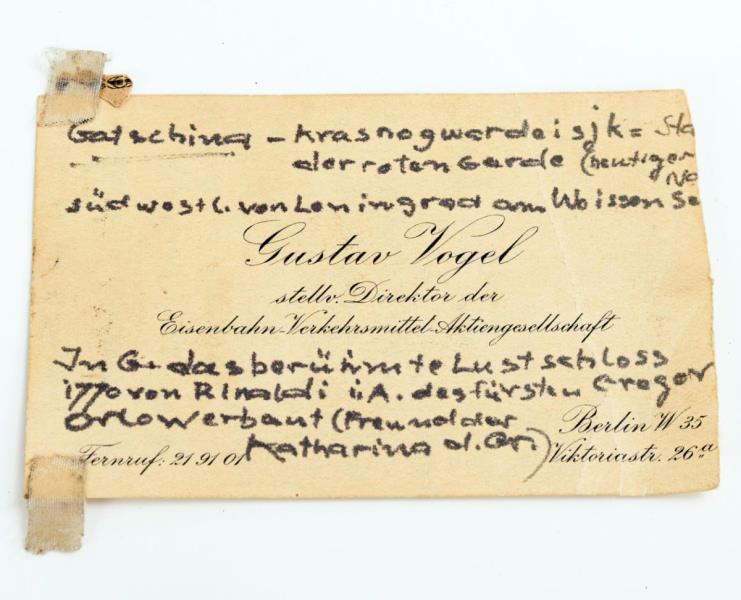 Gatschina - Krasnogwardeisjk = Sta
der roten Garde (heutiger
Na
südwestl. von Leningrad am Weissen Se
Gustav Vogel
stellv. Direktor der
Eisenbahn-Verkehrsmittel-Aktiengesellschaft
In G. das berühmte Lustschloss
1770 von Rinaldi i. A. des Fürsten Gregor
Orlow erbaut (Freund der
Katharina d. Gr.)
Berlin W 35
Fernruf: 21 91 01
Viktoriastr. 26a